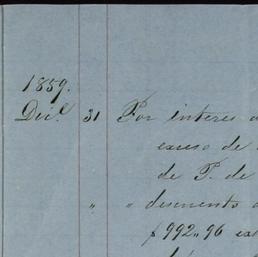 1859.
Dic.e 31 Por interes
exceso de
de P. de
" " descuento
$992.,96